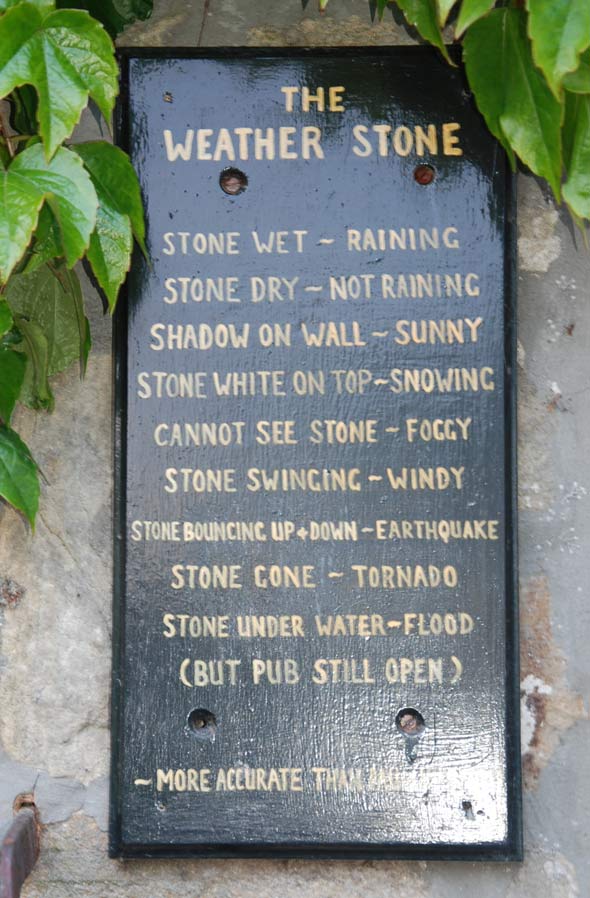 THE
WEATHER STONE
STONE WET ~ RAINING
STONE DRY ~ NOT RAINING
SHADOW ON WALL ~ SUNNY
STONE WHITE ON TOP ~ SNOWING
CANNOT SEE STONE ~ FOGGY
STONE SWINGING ~ WINDY
STONE BOUNCING UP + DOWN ~ EARTHQUAKE
STONE GONE ~ TORNADO
STONE UNDER WATER ~ FLOOD
(BUT PUB STILL OPEN)
~ MORE ACCURATE THAN